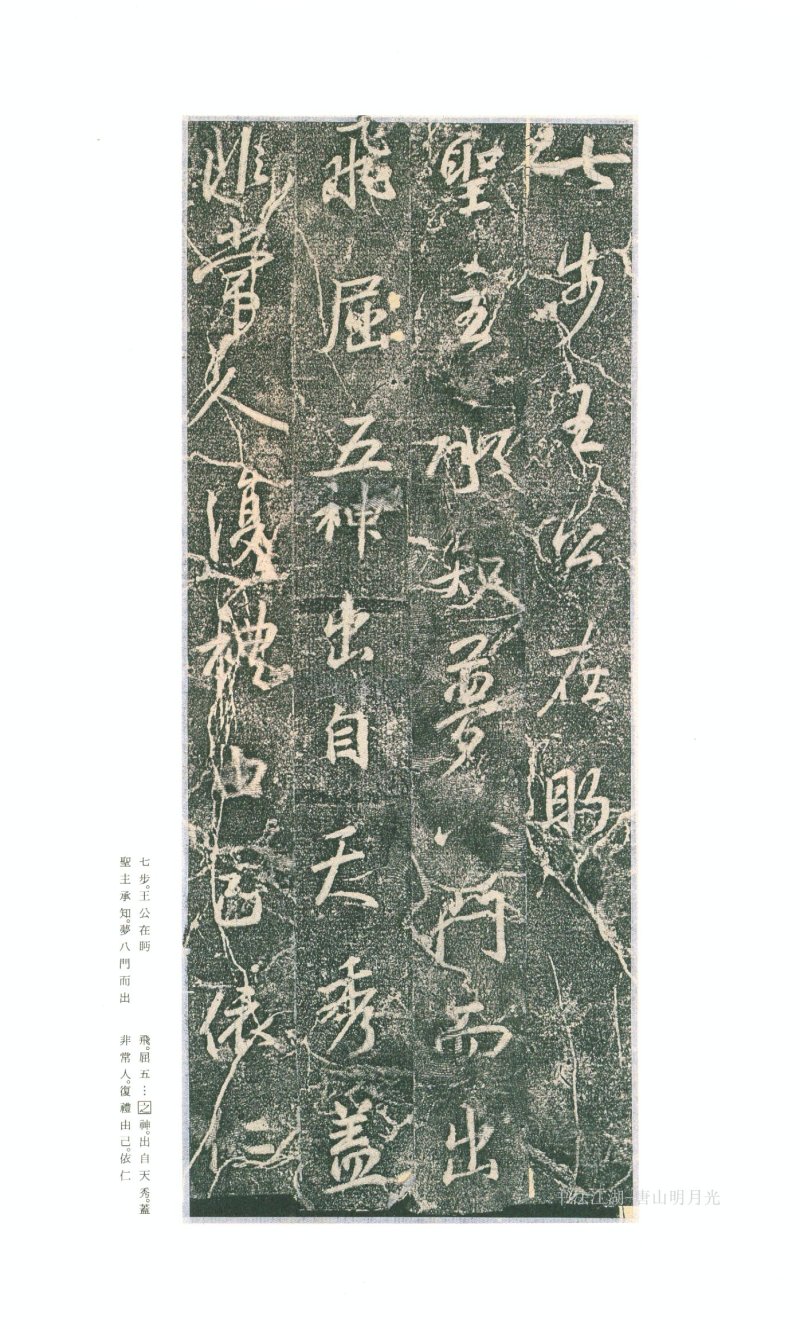 七步王公在眄
聖主承知夢八門而出
飛屈五神出自天秀蓋
非常人復禮由己依仁
七步。王公在眄
聖主承知。夢八門而出
飛。屈五…之神。出自天秀。蓋
非常人。復禮由己。依仁
唐山明月光